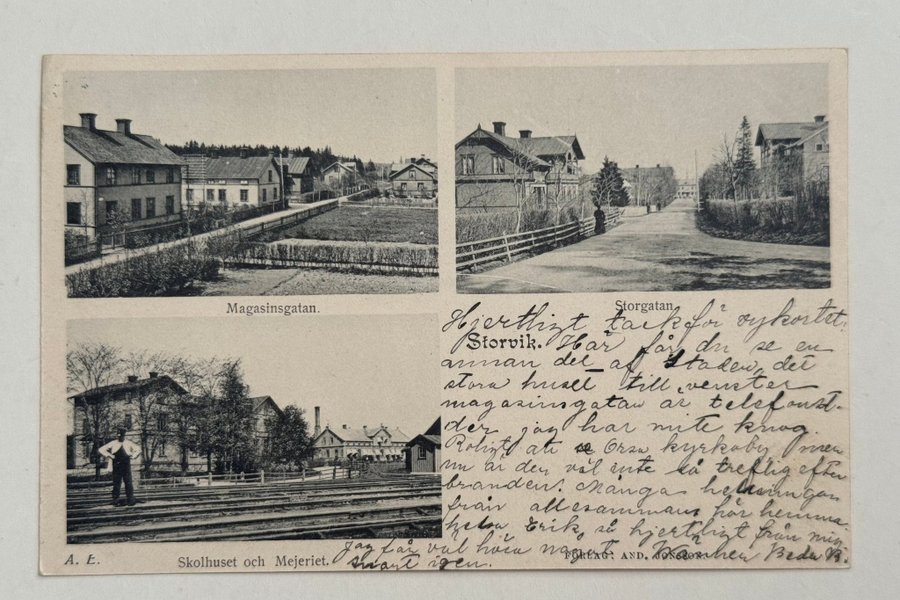 Magasinsgatan.
Storgatan
Storvik.
Hjertligt tack för vykortet!
Här får du se en
annan del af staden, det
stora huset till venster
magasinsgatan är telefonst-
der jag har mitt
Roligt att se Orsa kyrkoby men
nu är den väl inte så treflig efter
branden. Många helsningar
från allesammans här hemma.
helsa Erik så hjertligt från mig
Jag får väl höra något
snart igen.
Beda B.
A. E.
Skolhuset och Mejeriet.
FÖRLAG: AND.